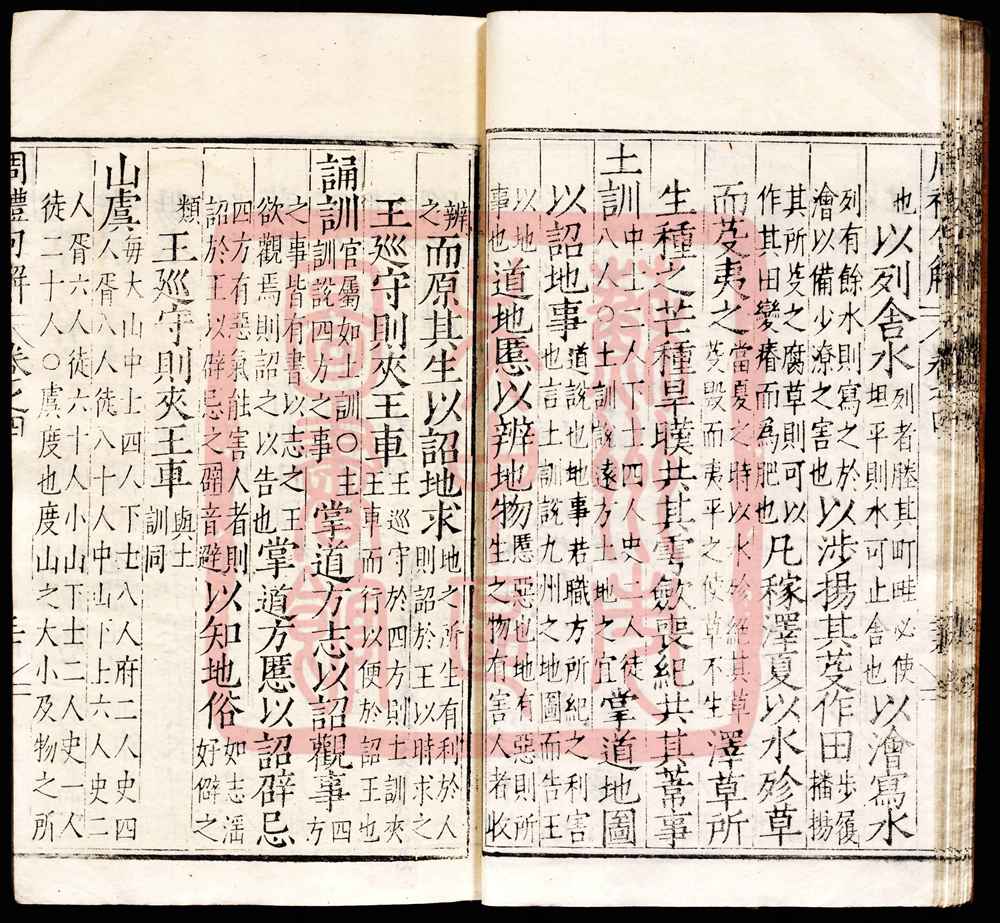 也以列舍水列者塍其町畦必使坦平則水可止舍也以澮寫水
列有餘水則寫之於澮以備少潦之害也以涉揚其芟作田步履播揚
其所芟之腐草則可以作其田變瘠而為肥也凡稼澤夏以水殄草
而芟夷之當夏之時以水殄絕其草芟毀而夷平之使草不生澤草所
生種之芒種旱暵共其雩歛喪紀共其葦事
土訓中士二人下士四人史二人徒八人○土訓說遠方土地之宜掌道地圖
以詔地事道說也地事若職方所紀之利害也言土訓說九州之地圖而告王
以地事也道地慝以辨地物慝惡也地有惡則所生之物有害人者收
辨之而原其生以詔地求地之所生有利於人則詔於王以時求之
王巡守則夾王車王巡守於四方則土訓夾王車而行以便於詔王也
誦訓官屬如土訓○主訓說四方之事掌道方志以詔觀事四方
之事皆有書以志之王欲觀焉則詔之以告也掌道方慝以詔辟忌
四方有惡氣能害人者則詔於王以辟忌之音避以知地俗如志淫好僻之
類王巡守則夾王車與土訓同
山虞每大山中士四人下士八人府二人史四人胥八人徒八十人中山下士六人史二
人胥六人徒六十人小山下士二人史一人徒二十人○虞度也度山之大小及物之所
周禮句解 卷之四